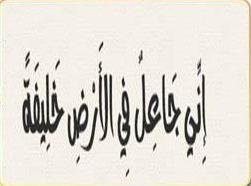 إِنِّي جَاعِلٌ فِي الأَرْضِ خَلِيفَةً